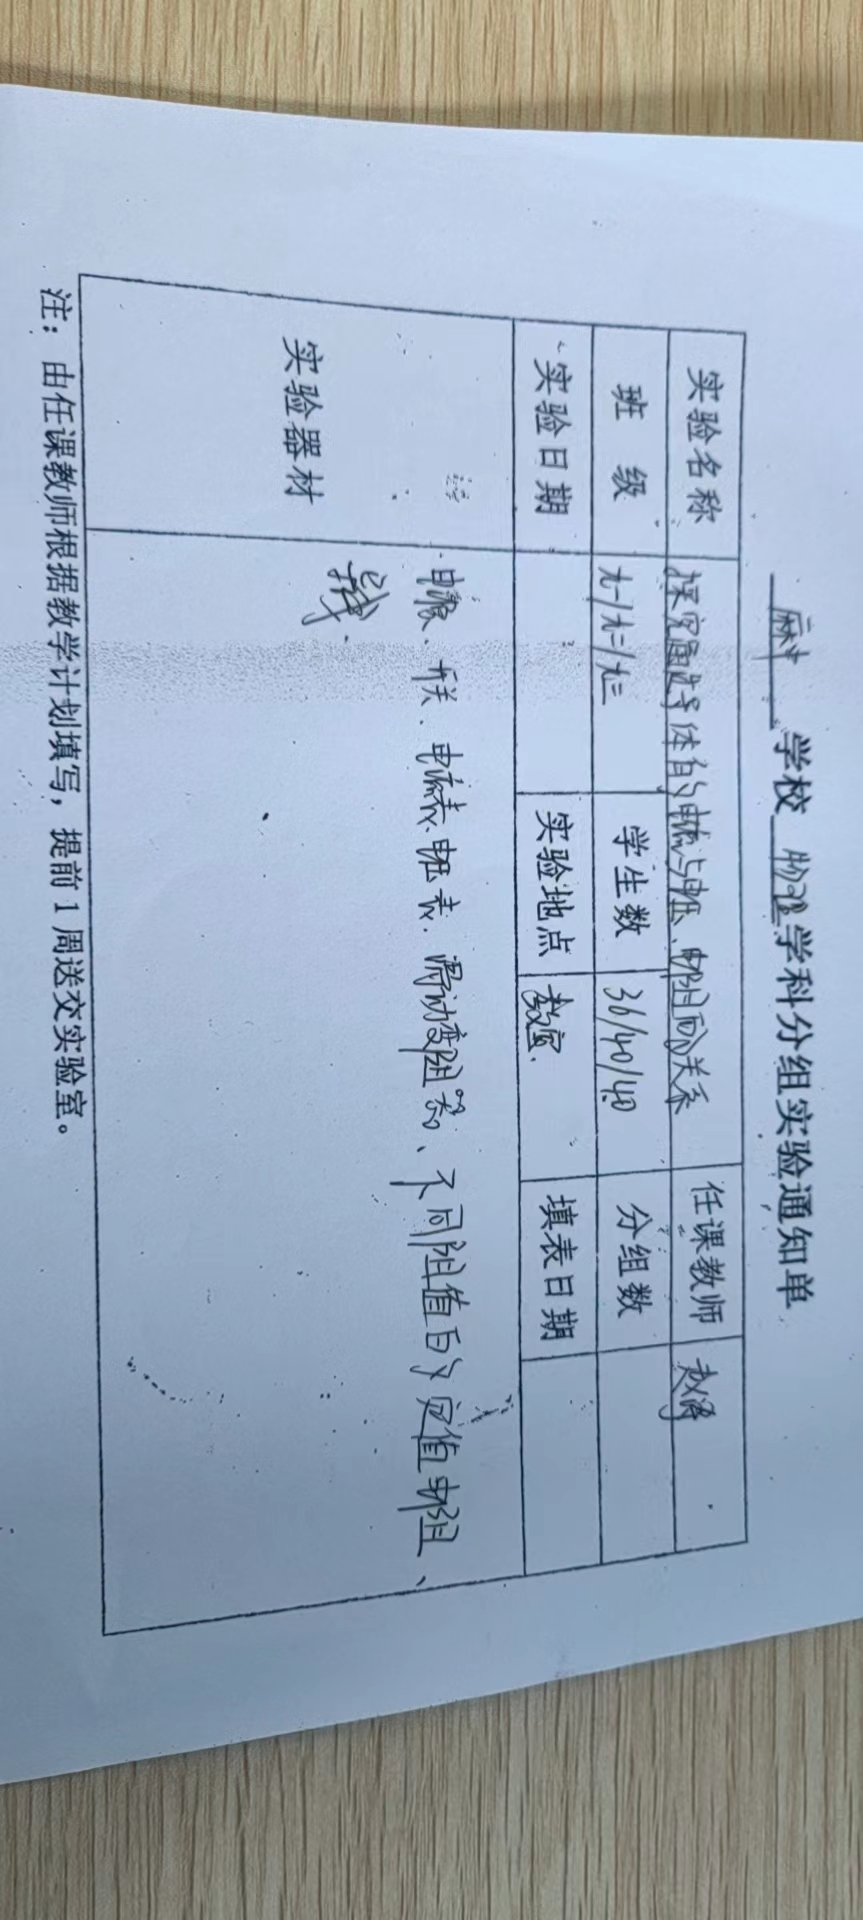 麻中 学校 物理 学科分组实验通知单
实验名称 探究通过导体的电流与电压、电阻的关系 任课教师 赵涛
班 级 九一/九二/九三 学生数 36/40/40 分组数
实验日期 实验地点 教室. 填表日期
实验器材 电源、开关、电流表、电压表、滑动变阻器、不同阻值的定值电阻、
导线.
注：由任课教师根据教学计划填写，提前1周送交实验室。